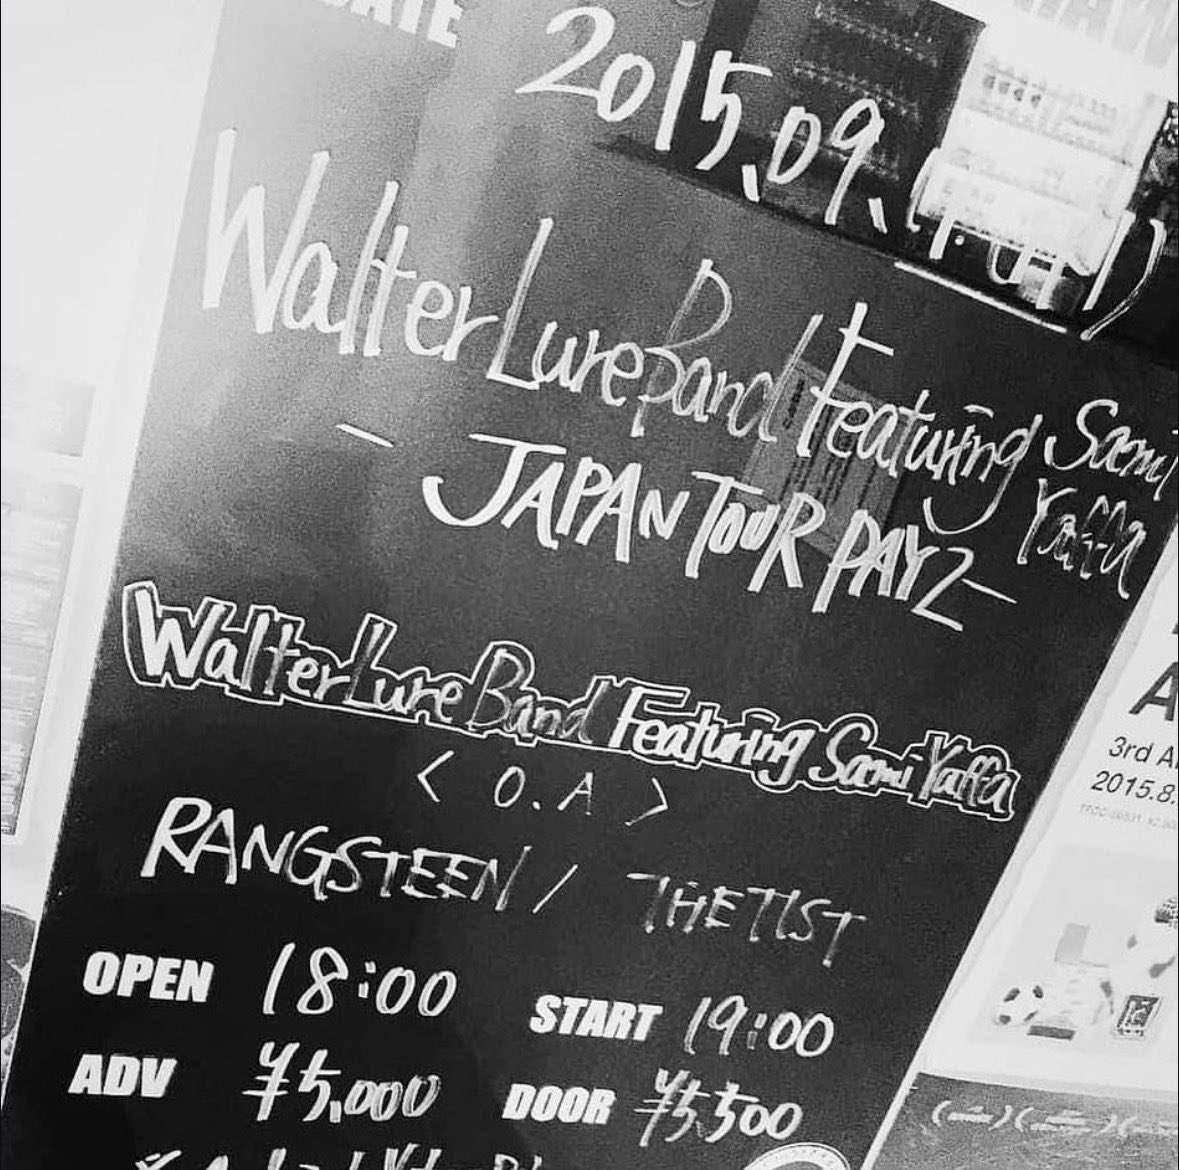 2015.09.
Walter Lure Band Featuring Sami Yaffa
- JAPAN TOUR DAY2 -
Walter Lure Band Featuring Sami Yaffa
< O.A >
RANGSTEEN / THE TIST
OPEN 18:00 START 19:00
ADV ¥5,000 DOOR ¥5,500
3rd A
2015.8.